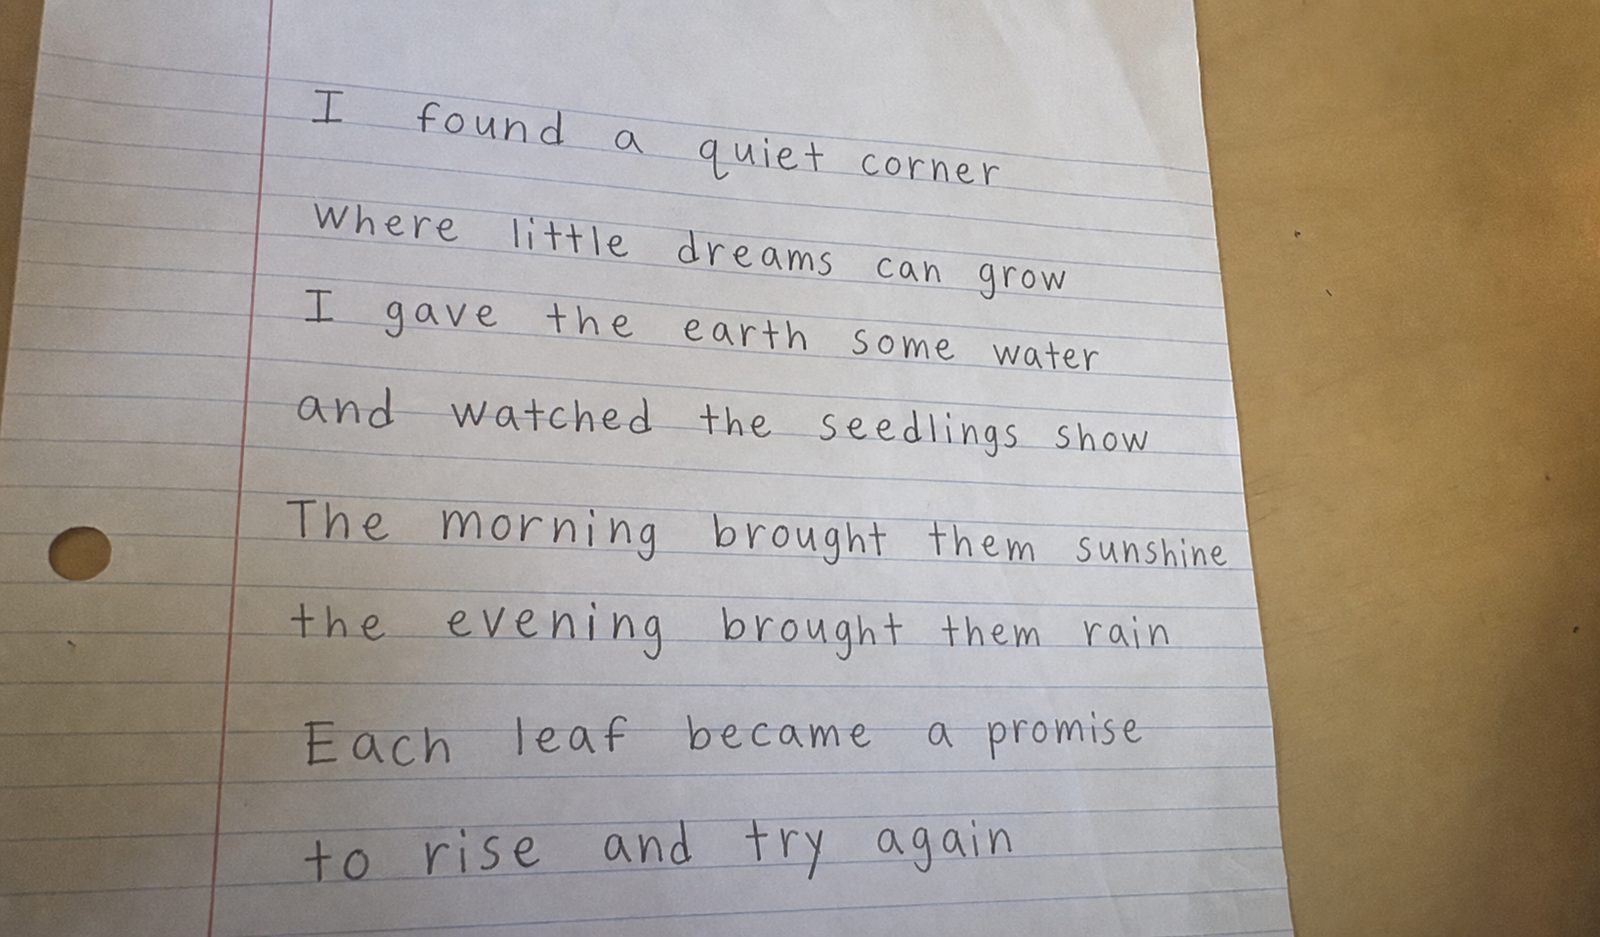 I found a quiet corner
where little dreams can grow
I gave the earth some water
and watched the seedlings show
The morning brought them sunshine
the evening brought them rain
Each leaf became a promise
to rise and try again